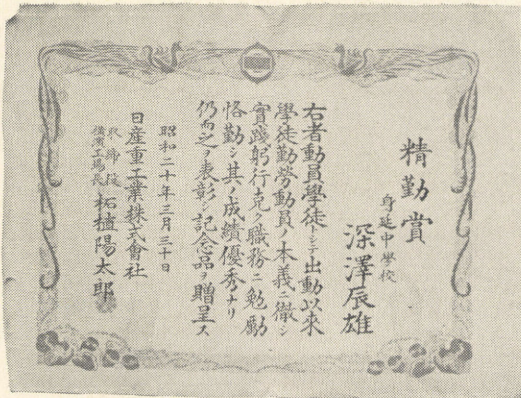 精勤賞
身延中學校
深澤辰雄
右者動員學徒トシテ出動以來
學徒勤勞動員ノ本義ニ徹シ
實踐躬行克ク職務ニ勉勵
恪勤シ其ノ成績優秀ナリ
仍而之ヲ表彰シ記念品ヲ贈呈ス
昭和二十年三月三十日
日産重工業株式會社
取締役
横濱工場長
柘植陽太郎